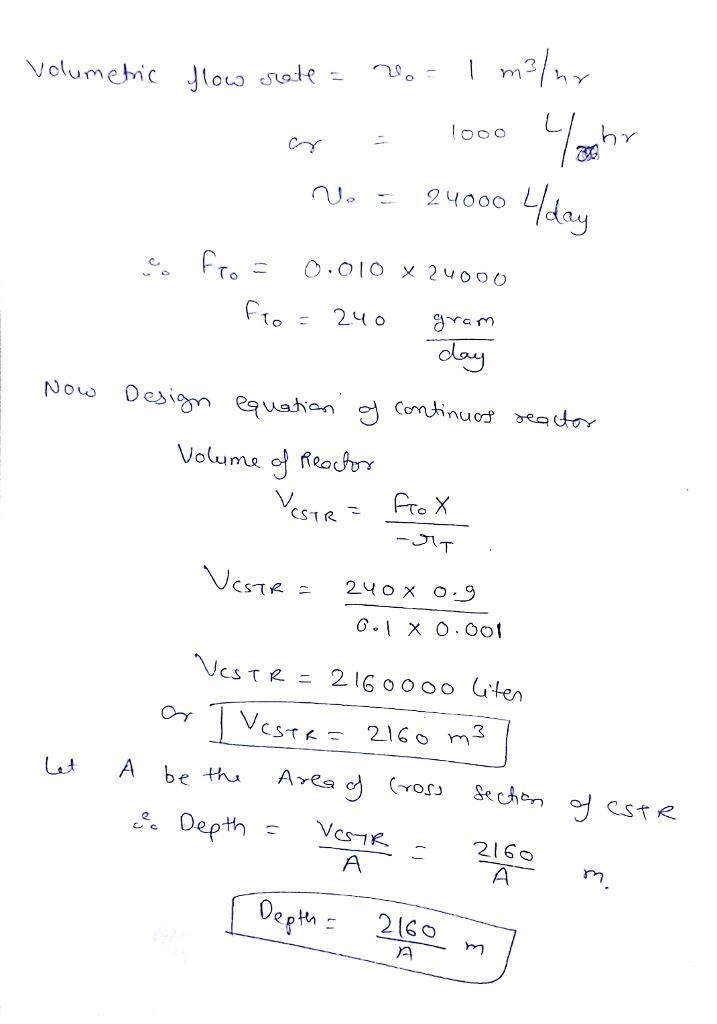 Volumetric flow rate = v₀ = 1 m³/hr
or = 1000 L/hr
v₀ = 24000 L/day
∴ F_T₀ = 0.010 × 24000
F_T₀ = 240 gram/day
Now Design equation of Continuos reactor
Volume of Reactor
V_CSTR = F_T₀ X / -r_T
V_CSTR = 240 × 0.9 / 0.1 × 0.001
V_CSTR = 2160000 liter
or V_CSTR = 2160 m³
Let A be the Area of Cross Section of CSTR
∴ Depth = V_CSTR / A = 2160 / A m.
Depth = 2160 / A m